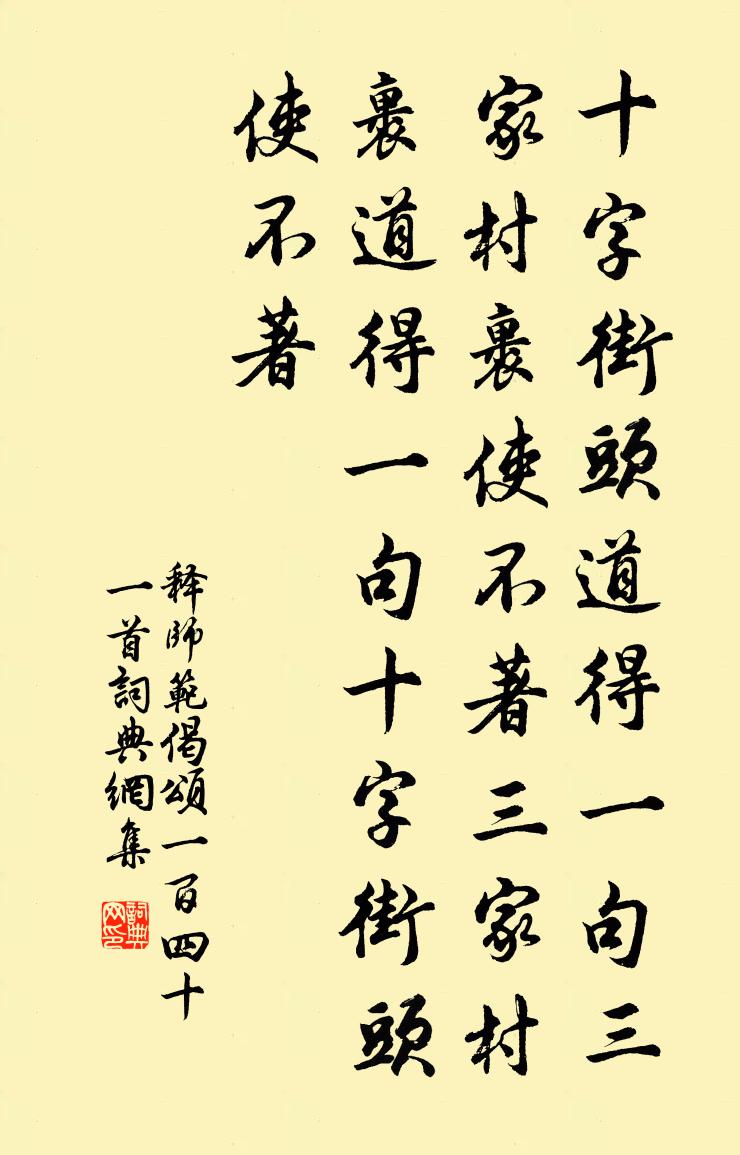 十字街頭道得一句三
家村裏使不著三家村
裏道得一句十字街頭
使不著
释師範偈頌一百四十
一首詞典網集
詞典
网印